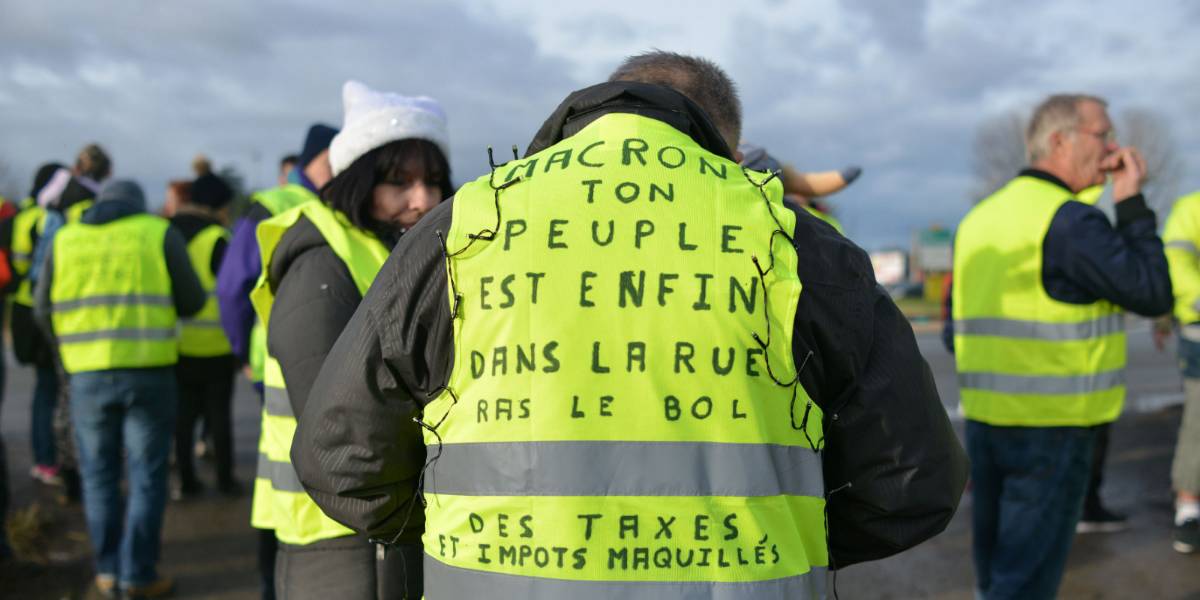 MACRON
TON
PEUPLE
EST ENFIN
DANS LA RUE
RAS LE BOL
DES TAXES
ET IMPOTS MAQUILLÉS